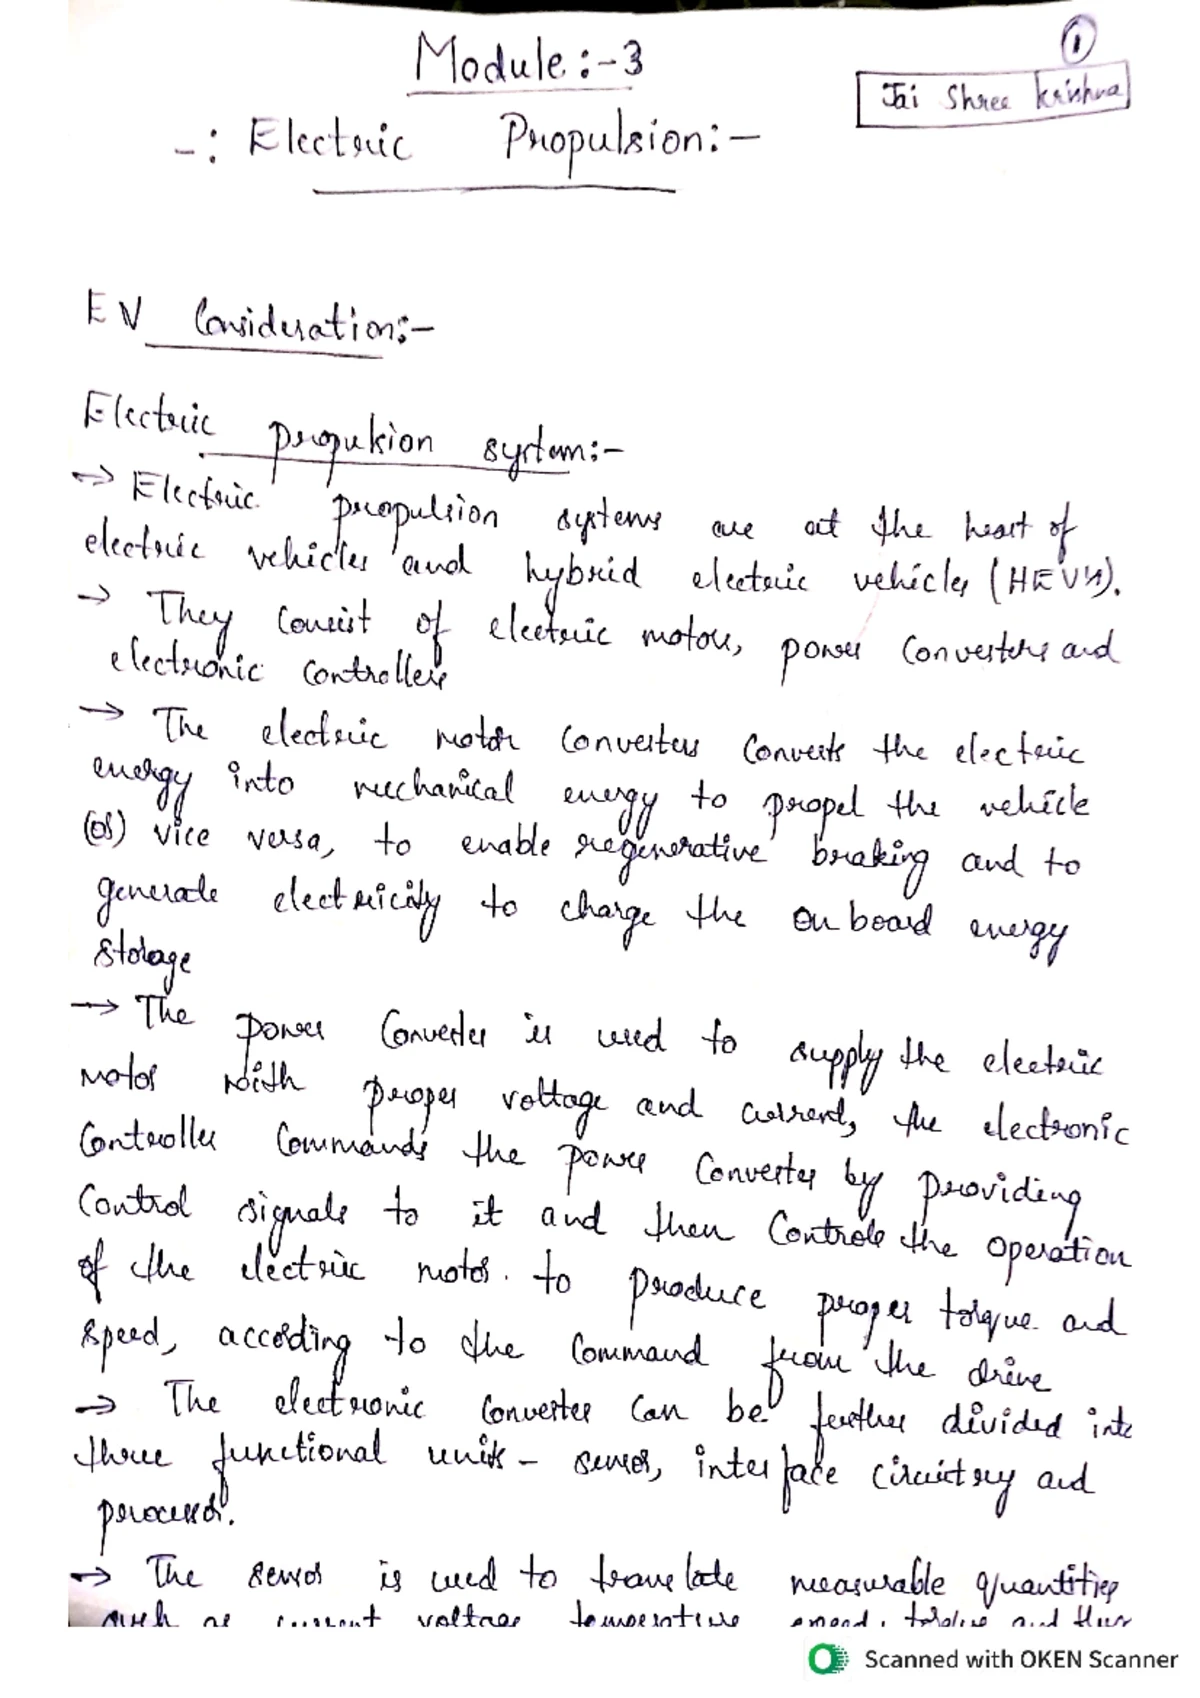 1
Module:-3
Jai Shree Krishna
-: Electric Propulsion:-
EV Consideration:-
Electric propulsion system:-
→ Electric propulsion systems are at the heart of
electric vehicles and hybrid electric vehicles (HEV's).
→ They consist of electric motors, power converters and
electronic controllers
→ The electric motor converters converts the electric
energy into mechanical energy to propel the vehicle
(or) vice versa, to enable regenerative braking and to
generate electricity to charge the on board energy
storage
→ The power converter is used to supply the electric
motor with proper voltage and current, the electronic
controller commands the power converter by providing
control signals to it and then controls the operation
of the electric motor. to produce proper torque and
speed, according to the command from the drive
→ The electronic converter can be further divided into
three functional units - sensor, interface circuitry and
processor.
→ The sensor is used to translate measurable quantities
such as current voltage temperature speed, torque and flux
Scanned with OKEN Scanner